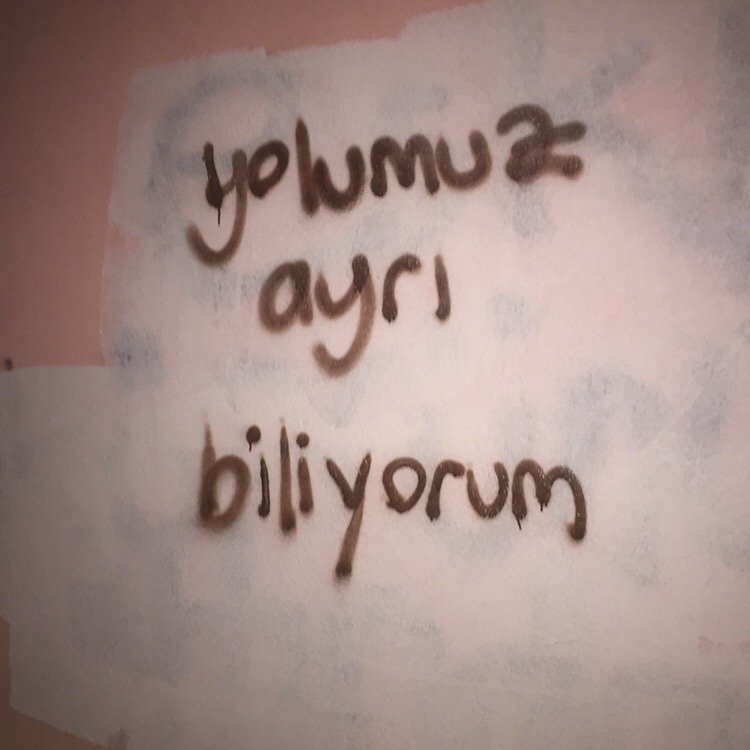 yolumuz
ayrı
biliyorum